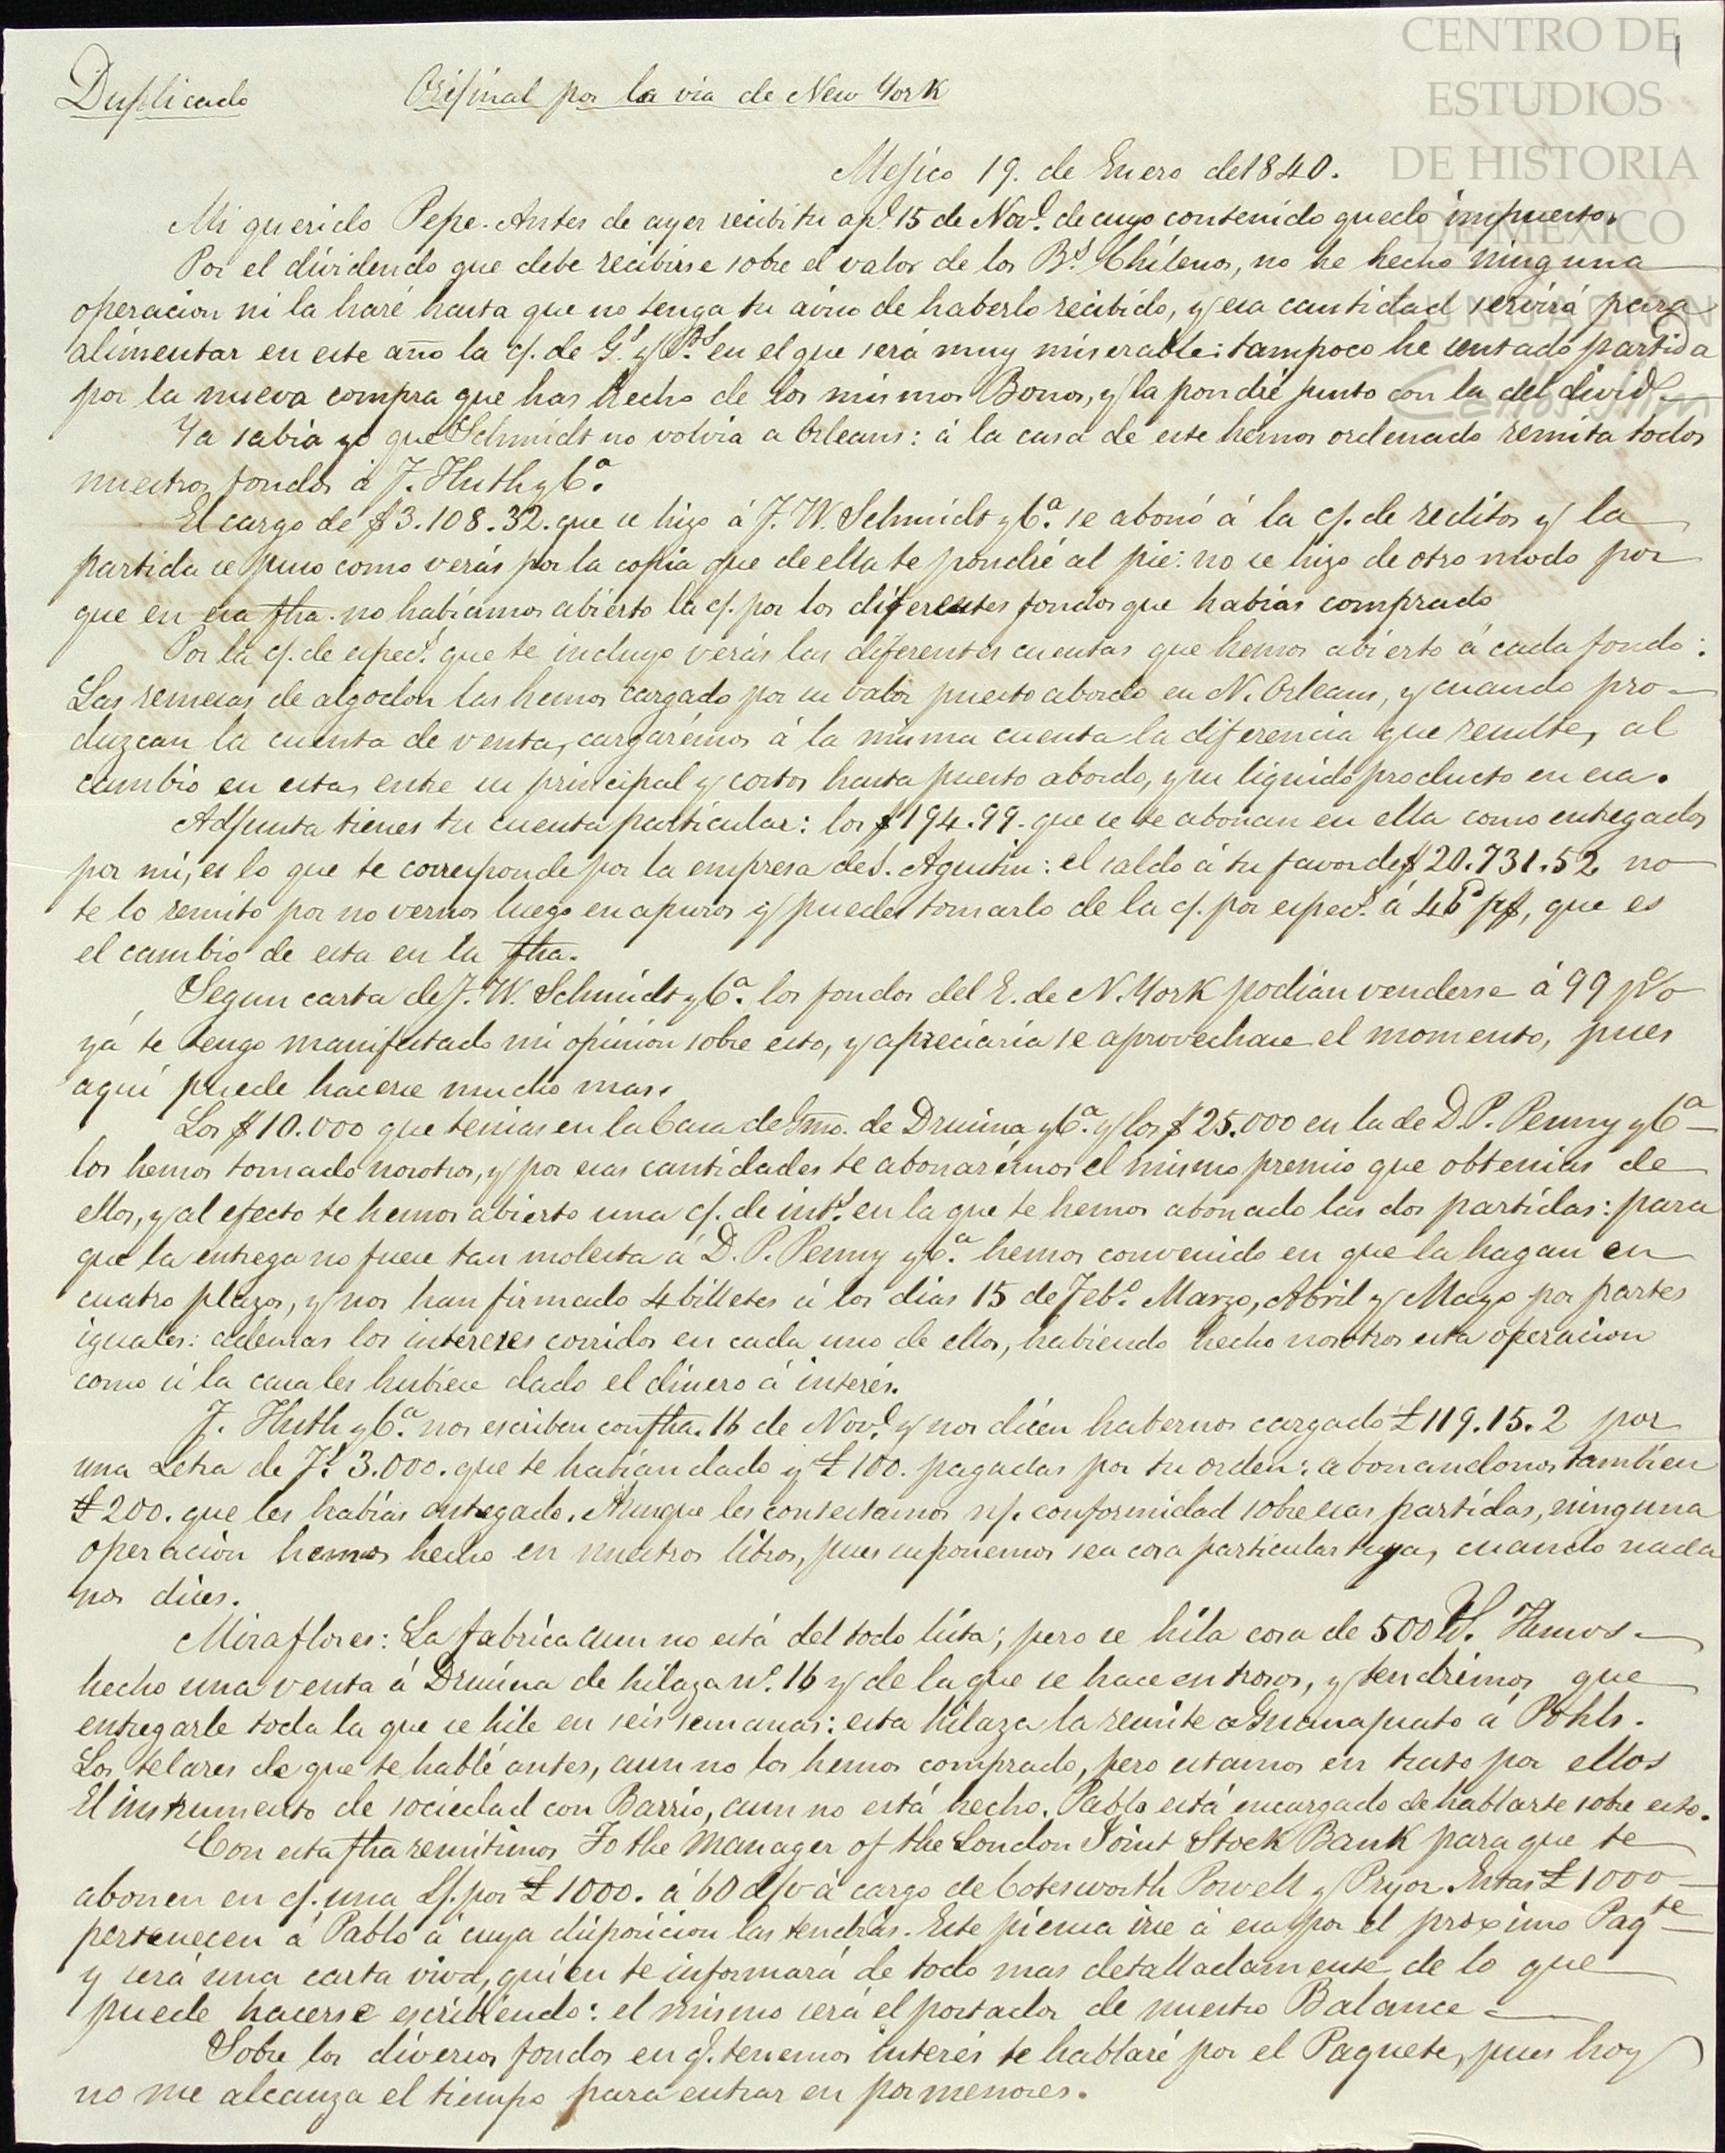 CENTRO DE
ESTUDIOS
DE HISTORIA
DE MEXICO
FUNDACIÓN
Carlos Slim
1
Duplicado Original por la via de New York
Mejico 19. de Enero de 1840.
Mi querido Pepe. Antes de ayer recibi tu ap.ª 15 de Nov.e de cuyo contenido quedo impuesto.
Por el dividendo que debe recibirse sobre el valor de los B.s Chilenos, no he hecho ninguna
operacion ni la haré hasta que no tenga tu aviso de haberlo recibido, y esa cantidad servirá para
alimentar en este año la c/. de G.s y P.s en el que será muy miserable: tampoco he sentado partida
por la nueva compra que has hecho de los mismos Bonos, y la pondré junto con la del divid.o
Ya sabia yo que Schmidt no volvia a Orleans: á la casa de este hemos ordenado remita todos
nuestros fondos á F. Huth y C.a
El cargo de $3.108.32. que se hizo á J. W. Schmidt y C.a se abonó á la c/. de reditos y la
partida se puso como verás por la copia que de ella te pondré al pie: no se hizo de otro modo por
que en esa fha. no habiamos abierto la c/. por los diferentes fondos que habias comprado
Por la c/. de espec.s que te incluyo verás las diferentes cuentas que hemos abierto á cada fondo:
Las remesas de algodon las hemos cargado por su valor puesto abordo en N. Orleans, y cuando pro-
duzcan la cuenta de venta, cargarémos á la misma cuenta la diferencia que resulte, al
cambio en esta, entre su principal y costos hasta puesto abordo, y su liquido producto en esa.
Adjunta tienes tu cuenta particular: los $194.99. que se te abonan en ella como entregados
por mi, es lo que te corresponde por la empresa de S. Agustin: el saldo á tu favor de $20.731.52 no
te lo remito por no vernos luego en apuros y puedes tomarlo de la c/. por espec.s á 46 d p$, que es
el cambio de esta en la fha.
Segun carta de J. W. Schmidt y C.a los fondos del E. de N. York podian venderse á 99 p%
yá te tengo manifestado mi opinion sobre esto, y apreciaria se aprovechase el momento, pues
aqui puede hacerse mucho mas.
Los $10.000 que tenias en la Casa de Gmo. de Drusina y C.a y los $25.000 en la de D. P. Penny y C.a
los hemos tomado nosotros, y por esas cantidades te abonarémos el mismo premio que obtenias de
ellos, y al efecto te hemos abierto una c/. de int.s en la que te hemos abonado las dos partidas: para
que la entrega no fuese tan molesta á D. P. Penny y C.a hemos convenido en que la hagan en
cuatro plazos, y nos han firmado 4 billetes á los dias 15 de Feb.o Marzo, Abril y Mayo por partes
iguales: ademas los intereses corridos en cada uno de ellos, habiendo hecho nosotros esta operacion
como si la casa les hubiese dado el dinero á interés.
F. Huth y C.a nos escriben con fha. 16 de Nov.e y nos dicen habernos cargado £119.15.2 por
una Letra de F.s 3.000. que te habian dado y £100. pagadas por tu orden: abonandonos tambien
£200. que les habias entregado. Aunque les contestamos n/. conformidad sobre esas partidas, ninguna
operacion hemos hecho en nuestros libros, pues suponemos sea cosa particular tuya, cuando nada
nos dices.
Miraflores: La fabrica aun no está del todo lista; pero se hila cosa de 500 lb. Hemos
hecho una venta á Drusina de hilaza n.o 16 y de la que se hace en trosos, y tendrémos que
entregarle toda la que se hile en seis semanas: esta hilaza la remite a Guanajuato á Pohls.
Los telares de que te hablé antes, aun no los hemos comprado, pero estamos en trato por ellos
El instrumento de sociedad con Barrio, aun no está hecho. Pablo está encargado de hablarte sobre esto.
Con esta fha remitimos To the Manager of the London Joint Stock Bank para que te
abonen en c/. una L/. por £1000. á 60 d/v á cargo de Cotesworth Powell y Pryor. Estas £1000
pertenecen á Pablo á cuya disposicion las tendrás. Este piensa irse á esa por el proximo Paq.te
y será una carta viva, quien te informará de todo mas detalladamente de lo que
puede hacerse escribiendo: el mismo será el portador de nuestro Balance
Sobre los diversos fondos en q. tenemos interés te hablaré por el Paquete, pues hoy
no me alcanza el tiempo para entrar en pormenores.